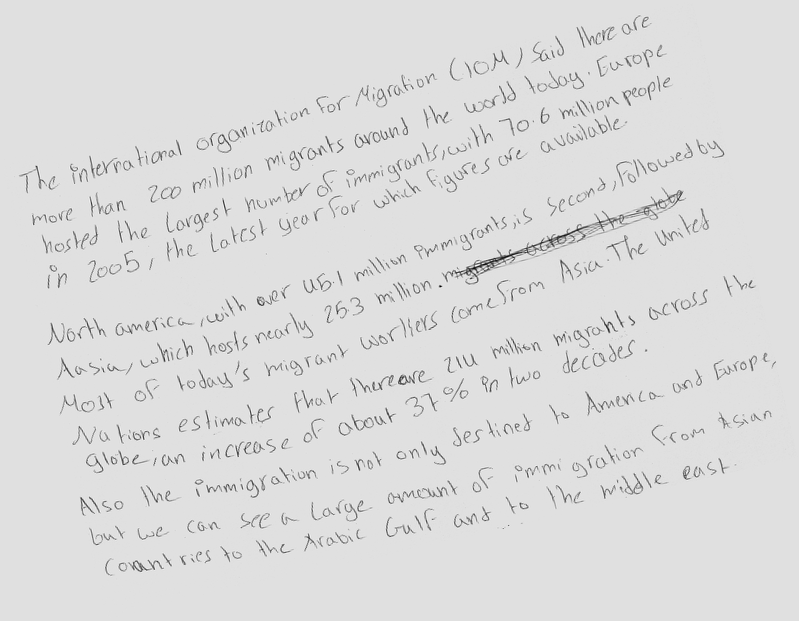 The international organization For Migration (IOM) Said there are
more than 200 million migrants around the world today. Europe
hosted the Largest number of immigrants, with 70.6 million people
in 2005, the Latest year For which figures are available.
North america, with over 45.1 million immigrants, is second, Followed by
Aasia, which hosts nearly 25.3 million. migrants across the globe
Most of today's migrant workers come From Asia. The United
Nations estimates that there are 214 million migrants across the
globe, an increase of about 37% in two decades.
Also the immigration is not only destined to America and Europe,
but we can see a Large amount of immigration From Asian
Countries to the Arabic Gulf and to the middle east.